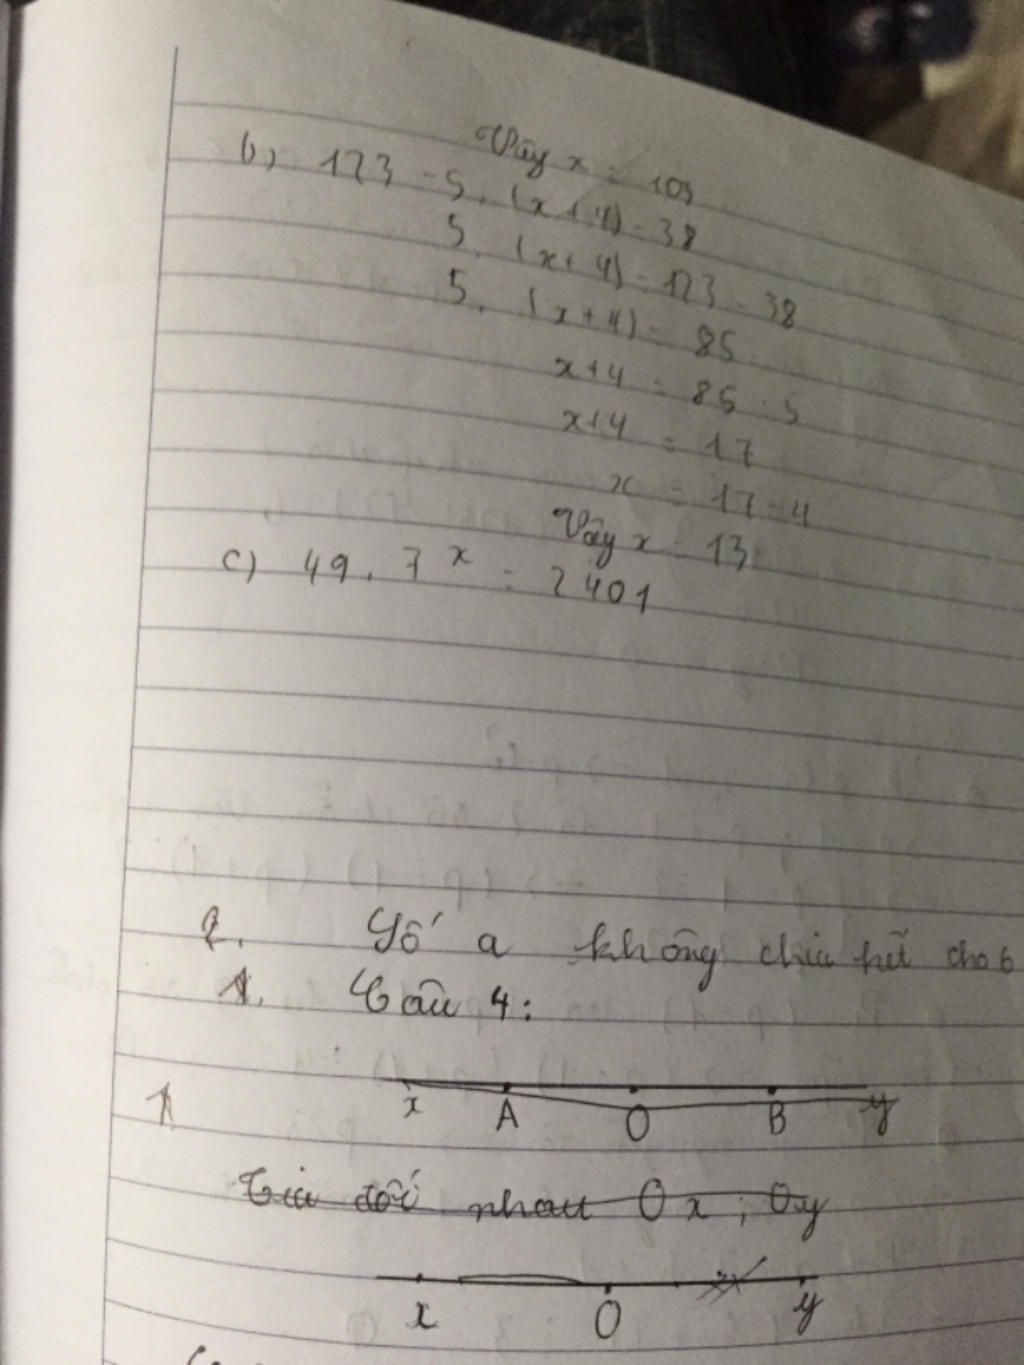 Vậy x = 103
b) 123 - 5. (x+4) = 38
5. (x+4) = 123 - 38
5. (x+4) = 85
x+4 = 85 : 5
x+4 = 17
x = 17-4
Vậy x = 13
c) 49. 7^x = 2401
2. Số a không chia hết cho 6
1. Câu 4:
x A O B y
Tia đối nhau Ox ; Oy
x O y